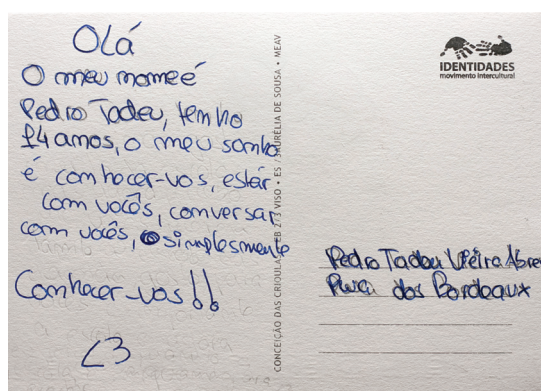 Olá
O meu nome é
Pedro Tadeu, tenho
14 amos, o meu sonho
é conhecer-vos, estar
com vocês, conversar
com vocês, simplesmente
Conhecer-vos!!
<3
CONCEIÇÃO DAS CRIOULAS EB 2/3 VISO • ES / 3 AURÉLIA DE SOUSA • MEAV
IDENTIDADES
movimento intercultural
Pedro Tadeu Vieira Abreu
dos Bordeaux